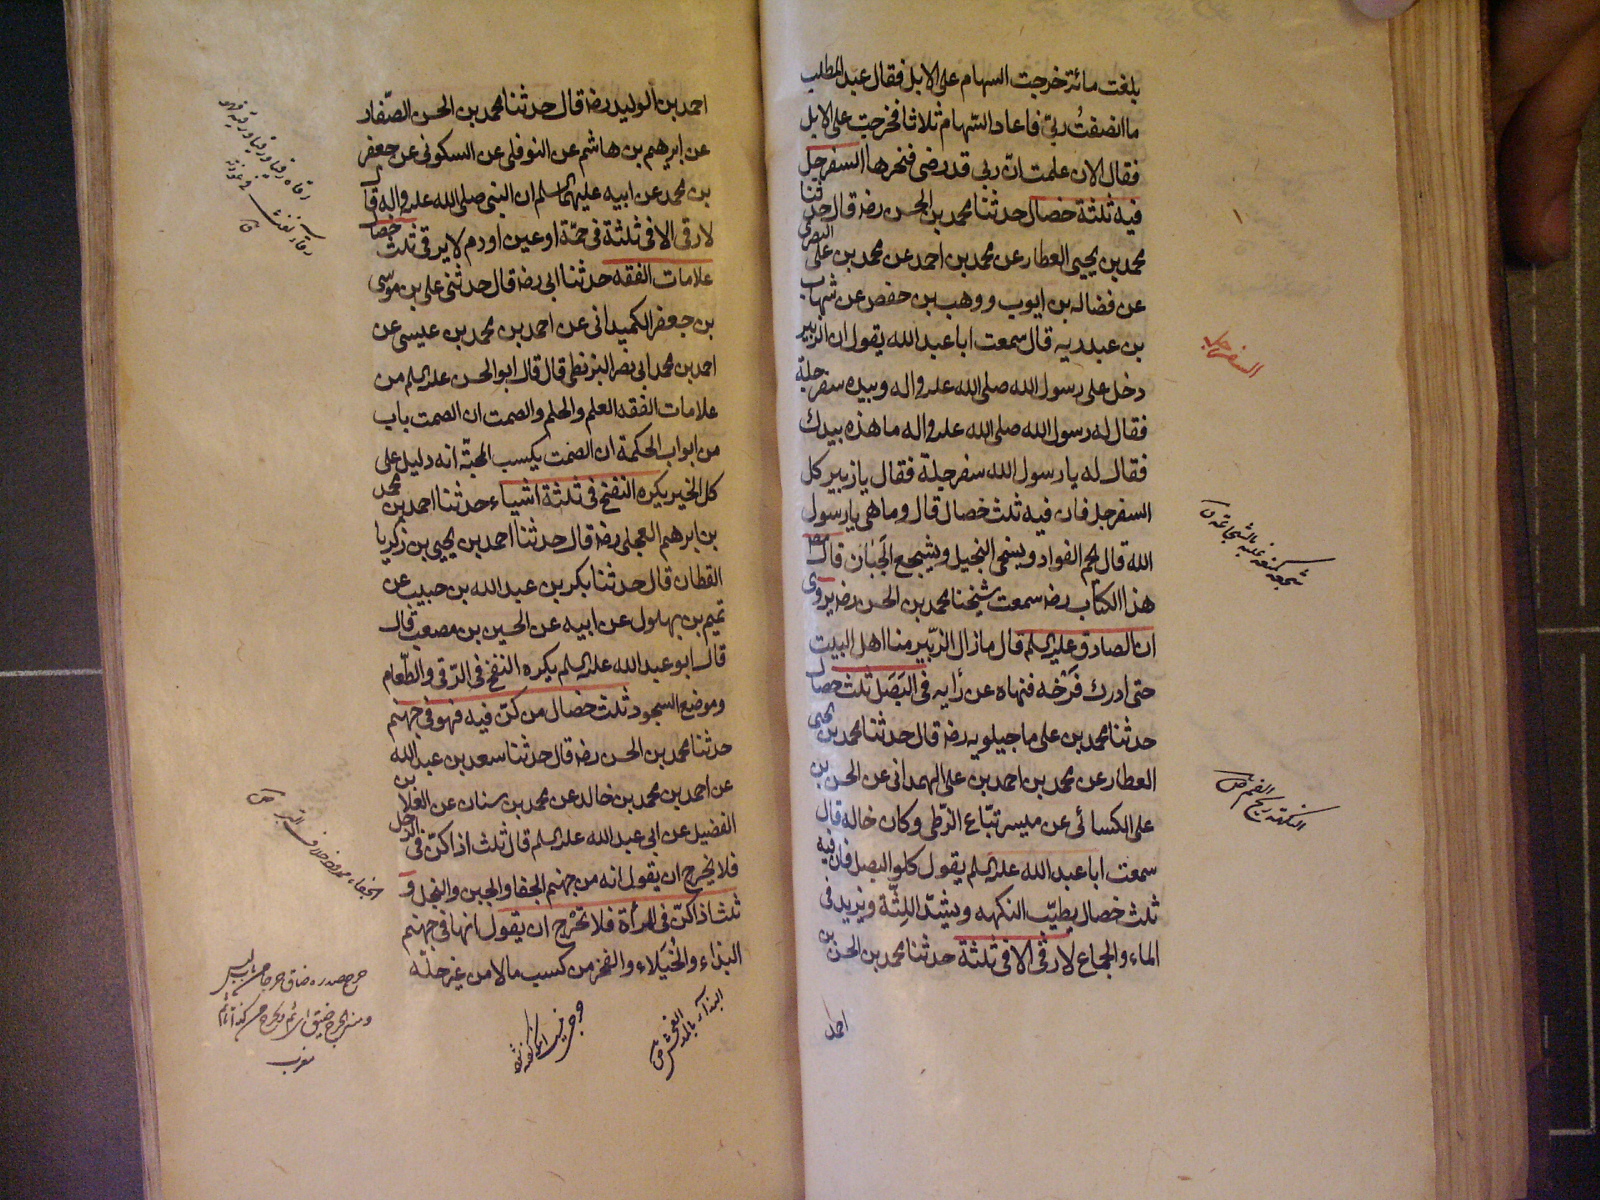 بلغت مائة خرجت السهام على الابل فقال عبد المطلب
ما انصفتُ ربّي فاعاد السّهام ثلاثا فخرجت على الابل
فقال الان علمت انّ ربي قد رضى فنحرها السفرجل
فيه ثلثة خصال حدثنا محمد بن الحسن رضه قال حدثنا
محمد بن يحيى العطار عن محمد بن احمد عن محمد بن على البصرى
عن فضاله بن ايوب و وهب بن حفص عن شهاب
بن عبد ربه قال سمعت ابا عبد الله يقول ان الزبير
دخل على رسول الله صلى الله عليه واله وبيده سفرجلة
فقال له رسول الله صلى الله عليه واله ما هذه بيدك
فقال له يا رسول الله سفرجلة فقال يا زبير كل
السفرجل فان فيه ثلث خصال قال وما هى يا رسول
الله قال يجم الفواد ويسخى البخيل ويشجع الجَبان قال مص
هذا الكتاب رضه سمعت شيخنا محمد بن الحسن رضه يروى
ان الصادق عليه السلم قال ما زال الزّبير منا اهل البيت
حتى ادرك فَرْخه فنهاه عن رأيه فى البَصَل ثلث خصال
حدثنا محمد بن على ماجيلويه رضه قال حدثنا محمد بن يحيى
العطار عن محمد بن احمد بن على الهمدانى عن الحسن بن
على الكسائى عن ميسر بيّاع الزّطى وكان خاله قال
سمعت ابا عبد الله عليه السلم يقول كلوا البصل فان فيه
ثلث خصال يطيّب النكهه ويشدّ اللِثّة ويزيد فى
الماء والجماع لا رقى الا فى ثلثة حدثنا محمد بن الحسن بن
احمد
السفرجل
النكهة ريح الفم ص
احمد بن الوليد رضه قال حدثنا محمد بن الحسن الصّفار
عن ابرهيم بن هاشم عن النوفلى عن السكونى عن جعفر
بن محمد عن ابيه عليهما السلم ان النبى صلى الله عليه واله قال
لا رقى الا فى ثلثة فى حمّة او عين او دم لا يرقى ثلث خصال
علامات الفقه حدثنا ابى رضه قال حدثنى على بن موسى
بن جعفر الكميدانى عن احمد بن محمد بن عيسى عن
احمد بن محمد ابى نصر البزنطى قال قال ابو الحسن عليه السلم من
علامات الفقه العلم والحلم والصمت ان الصمت باب
من ابواب الحكمة ان الصمت يكسب المحبّة انه دليل على
كل الخير يكره النفخ فى ثلثة اشياء حدثنا احمد بن محمد
بن ابرهيم العجلى رضه قال حدثنا احمد بن يحيى بن زكريا
القطان قال حدثنا بكر بن عبد الله بن حبيب عن
تميم بن بهلول عن ابيه عن الحسين بن مصعب قال
قال ابو عبد الله عليه السلم يكره النفخ فى الرّقى والطّعام
وموضع السجود ثلث خصال من كنّ فيه فهو فى جهنم
حدثنا محمد بن الحسن رضه قال حدثنا سعد بن عبد الله
عن احمد بن محمد بن خالد عن محمد بن سنان عن العلا بن
الفضيل عن ابى عبد الله عليه السلم قال ثلث اذا كنّ فى الرجل
فلا يحرج ان يقول انه من جهنم الجفا والجبن والبخل و
ثلث اذا كنّ فى المرأة فلا تحْرج ان يقول انها فى جهنم
البذاء والخُيَلاء والفخر من كسب مالا من غير حله
البذاء بالمد الفحش ص